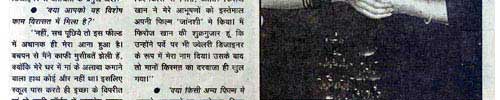 'क्या आपको यह विशेष
काम विरासत में मिला है?'
'नहीं, सच पूछिये तो इस फील्ड
में अचानक ही मेरा आना हुआ है।
बचपन में मैंने काफी मुसीबतें झेली हैं,
क्योंकि मेरे घर में मां के अलावा कमाने
वाला हाथ कोई और नहीं था। इसलिए
स्कूल पास करते ही इच्छा के विपरीत
खान ने मेरे आभूषणों को इस्तेमाल
अपनी फिल्म 'जांनशी' में किया। मैं
फिरोज खान की शुक्रगुजार हूं, कि
उन्होंने पर्दे पर भी ज्वेलरी डिजाइनर
के रूप में मेरा नाम दिया। उसके बाद
तो मानों किस्मत का दरवाजा ही खुल
गया!'
'क्या किसी अन्य फिल्म में